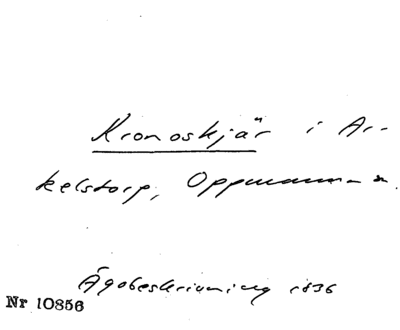 Kronoskjär i Ar-
kelstorp, Oppmanna sn.
Ägobeskrivning 1836
Nr 10856